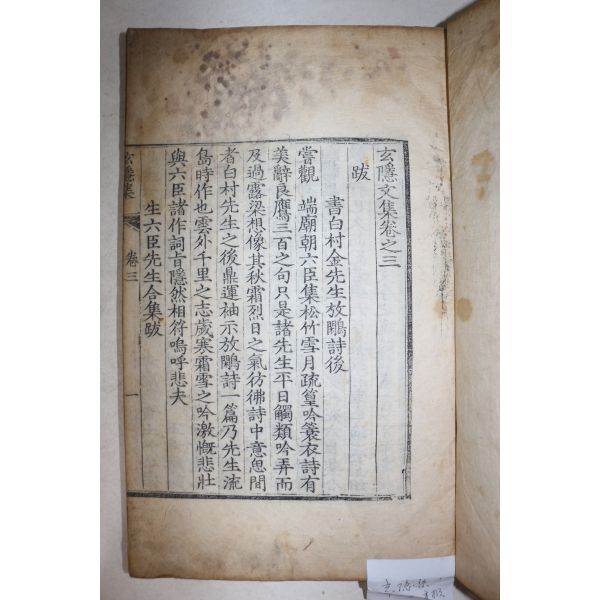 玄隱文集卷之三
跋
書白村金先生放鷴詩後
嘗觀 端廟朝六臣集松竹雪月疏篁吟簑衣詩有
美辭良鷹三百之句只是諸先生平日觸類吟弄而
及過露梁想像其秋霜烈日之氣彷彿詩中意思間
者白村先生之後鼎運袖示放鷴詩一篇乃先生流
島時作也雲外千里之志歲寒霜雪之吟激慨悲壯
與六臣諸作詞旨隱然相符嗚呼悲夫
生六臣先生合集跋
玄隱集
卷三
一